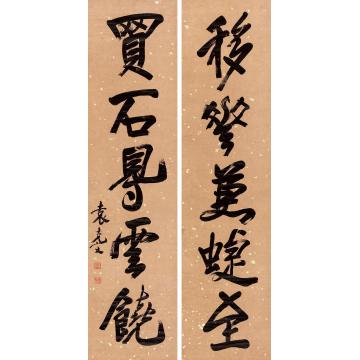 移花兼蝶至
買石得雲饒
袁克文